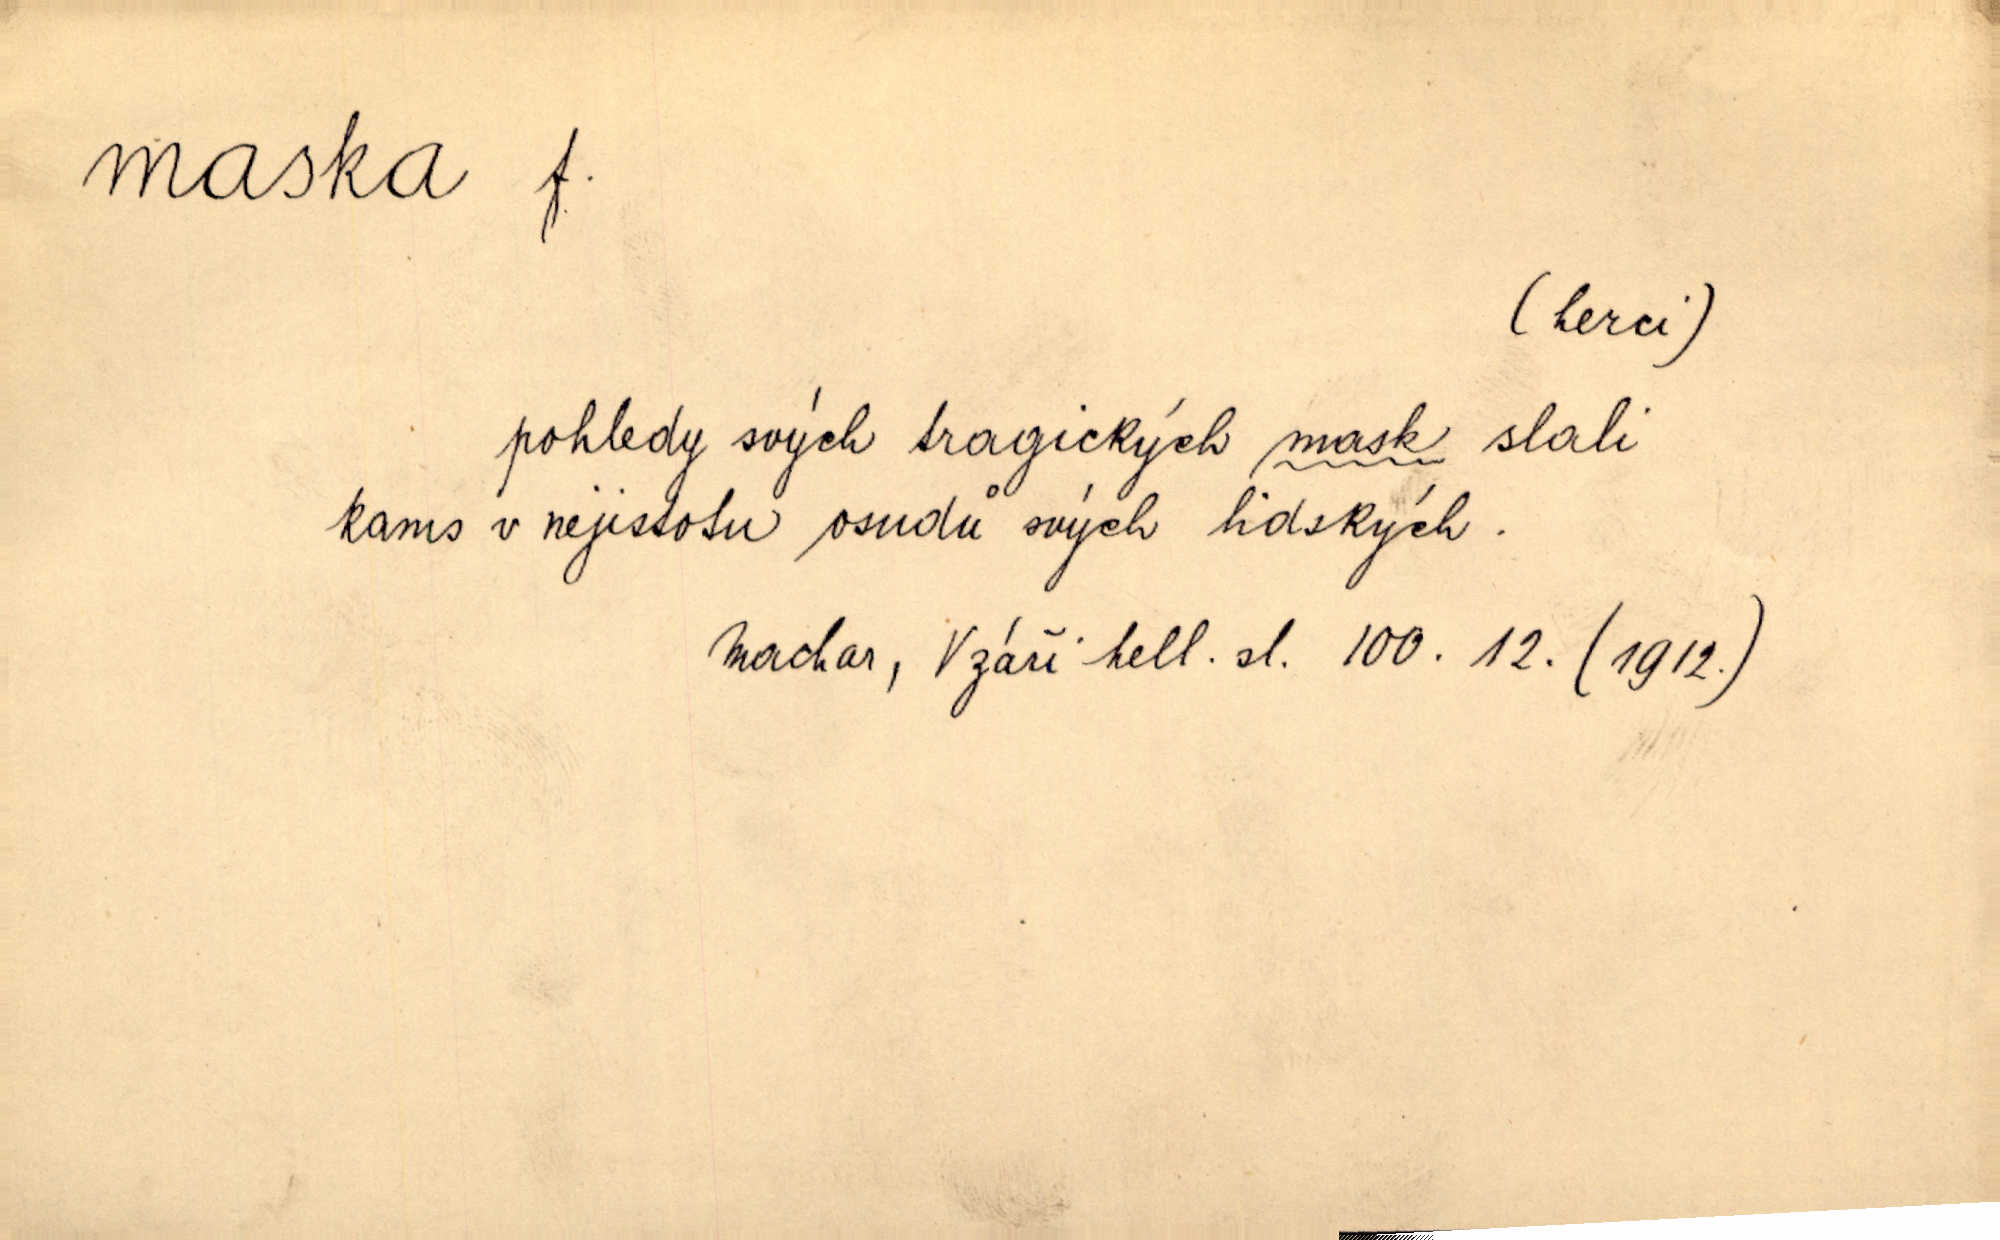 maska f.
(herci)
pohledy svých tragických mask slali
kams v nejistotu osudů svých lidských.
Machar, V záři hell. sl. 100. 12. (1912.)